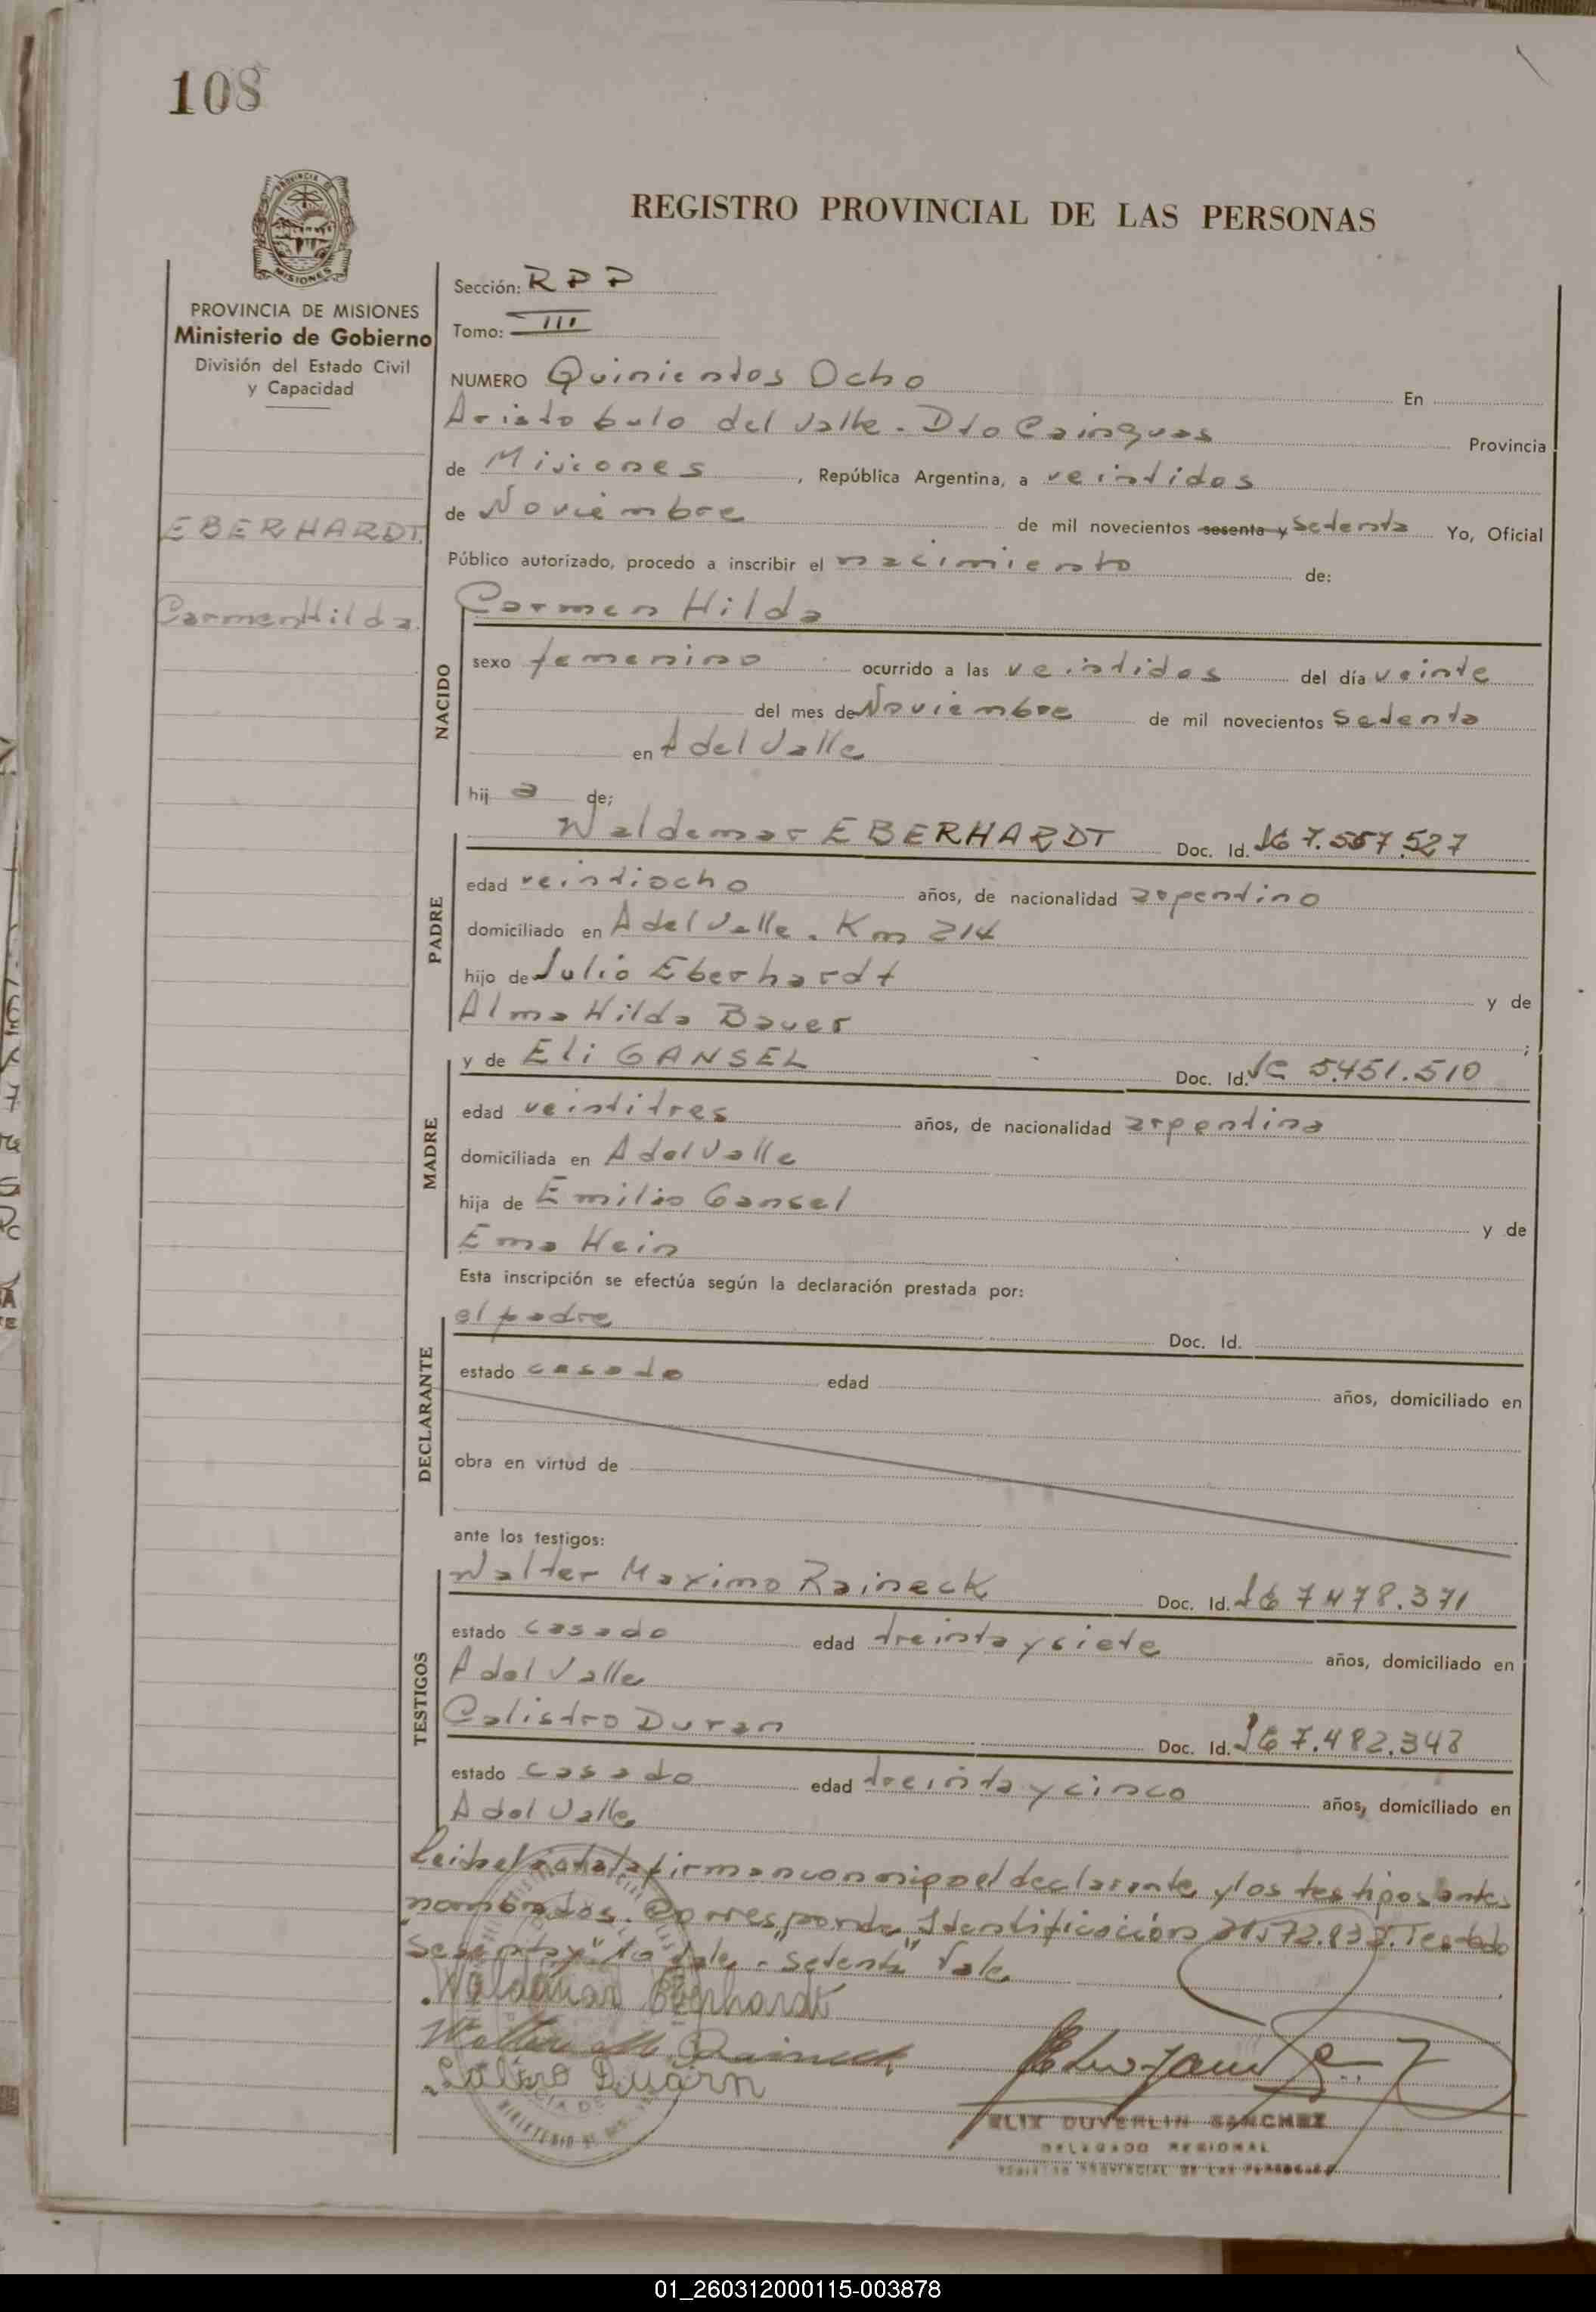 108
PROVINCIA DE
MISIONES
REGISTRO PROVINCIAL DE LAS PERSONAS
PROVINCIA DE MISIONES
Ministerio de Gobierno
División del Estado Civil
y Capacidad
EBERHARDT.
Carmen Hilda.
Sección: RPP
Tomo: III
NUMERO Quinientos Ocho En
Aristobulo del Valle. Dto Cainguas Provincia
de Misiones, República Argentina, a veintidos
de Noviembre de mil novecientos sesenta y Setenta Yo, Oficial
Público autorizado, procedo a inscribir el nacimiento de:
Carmen Hilda
NACIDO
sexo femenino ocurrido a las veintidos del día veinte
del mes de Noviembre de mil novecientos Setenta
en A del Valle
hij a de;
PADRE
Waldemar EBERHARDT Doc. Id. 7.557.527
edad veintiocho años, de nacionalidad argentino
domiciliado en A del Valle. Km 214
hijo de Julio Eberhardt y de
Alma Hilda Bauer;
MADRE
y de Eli GANSEL Doc. Id. LC 5.451.510
edad veintitres años, de nacionalidad argentina
domiciliada en A del Valle
hija de Emilio Gansel y de
Ema Hein
Esta inscripción se efectúa según la declaración prestada por:
DECLARANTE
el padre Doc. Id.
estado casado edad años, domiciliado en
obra en virtud de
ante los testigos:
TESTIGOS
Walter Maximo Raineck Doc. Id. 7.478.371
estado casado edad treinta y siete años, domiciliado en
A del Valle
Calistro Duran Doc. Id. 7.482.348
estado casado edad treinta y cinco años, domiciliado en
A del Valle
Leida el acta la firman conmigo el declarante y los testigos antes
nombrados. Corresponde Identificación Testado
"sesenta y" No Vale. "Setenta" Vale.
Waldemar Eberhardt
Walter M. Raineck
Duarn
ELIX DUVERLIN SANCHEZ
DELEGADO REGIONAL
REGISTRO PROVINCIAL DE LAS PERSONAS
01_260312000115-003878